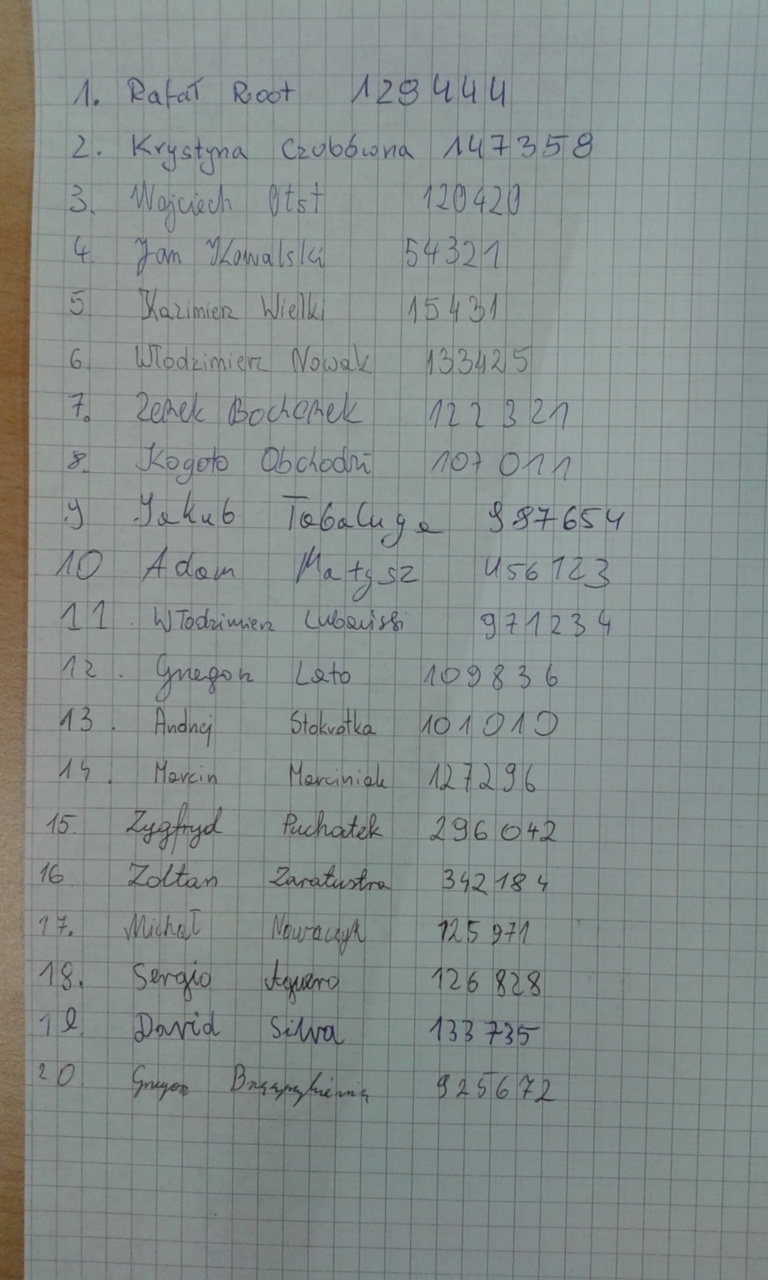 1. Rafał Root 129444
2. Krystyna Czubówna 147358
3. Wojciech Otst 120420
4 Jan Kowalski 54321
5 Kazimierz Wielki 15431
6. Włodzimierz Nowak 133425
7. Zenek Bochenek 122321
8. Kogoto Obchodzi 107011
9 Jakub Tabaluga 987654
10 Adam Matysz 456123
11. Włodzimierz 971234
12. Grzegorz Lato 109836
13. Andrzej Stokrotka 101010
14. Marcin Marciniak 127296
15. Zygfryd Puchatek 296042
16. Zoltan Zaratustra 342184
17. Michał Nowaczyk 125971
18. Sergio Aguero 126828
19 David Silva 133735
20 Grzegorz 925672